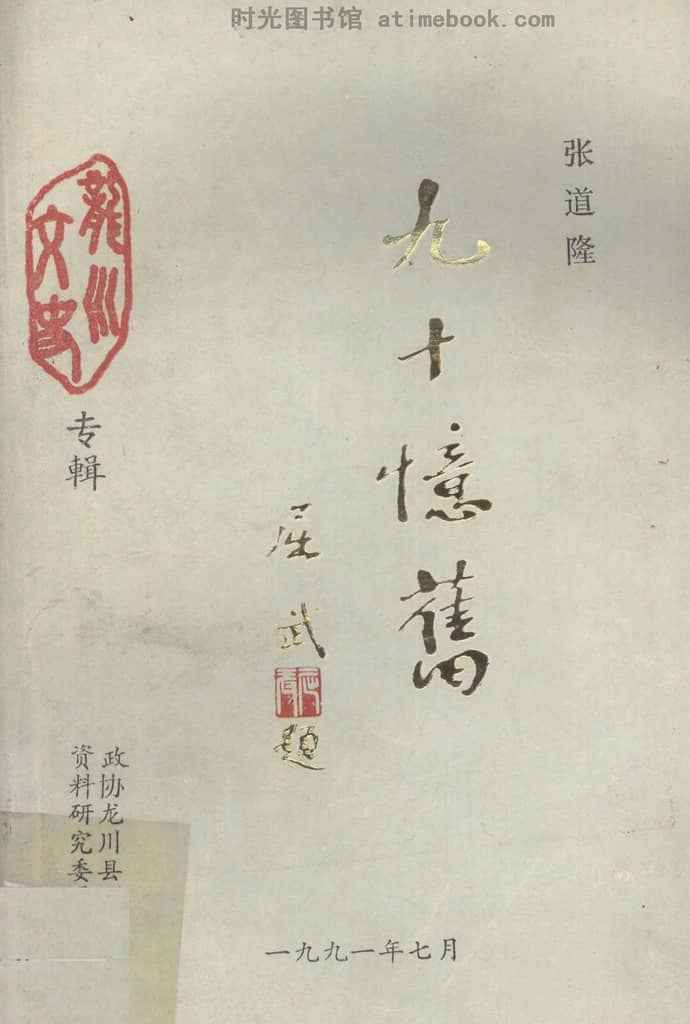 时光图书馆 atimebook.com
张道隆
九十憶舊
屈武
題
龍川
文史
专輯
政协龙川县
资料研究委
一九九一年七月